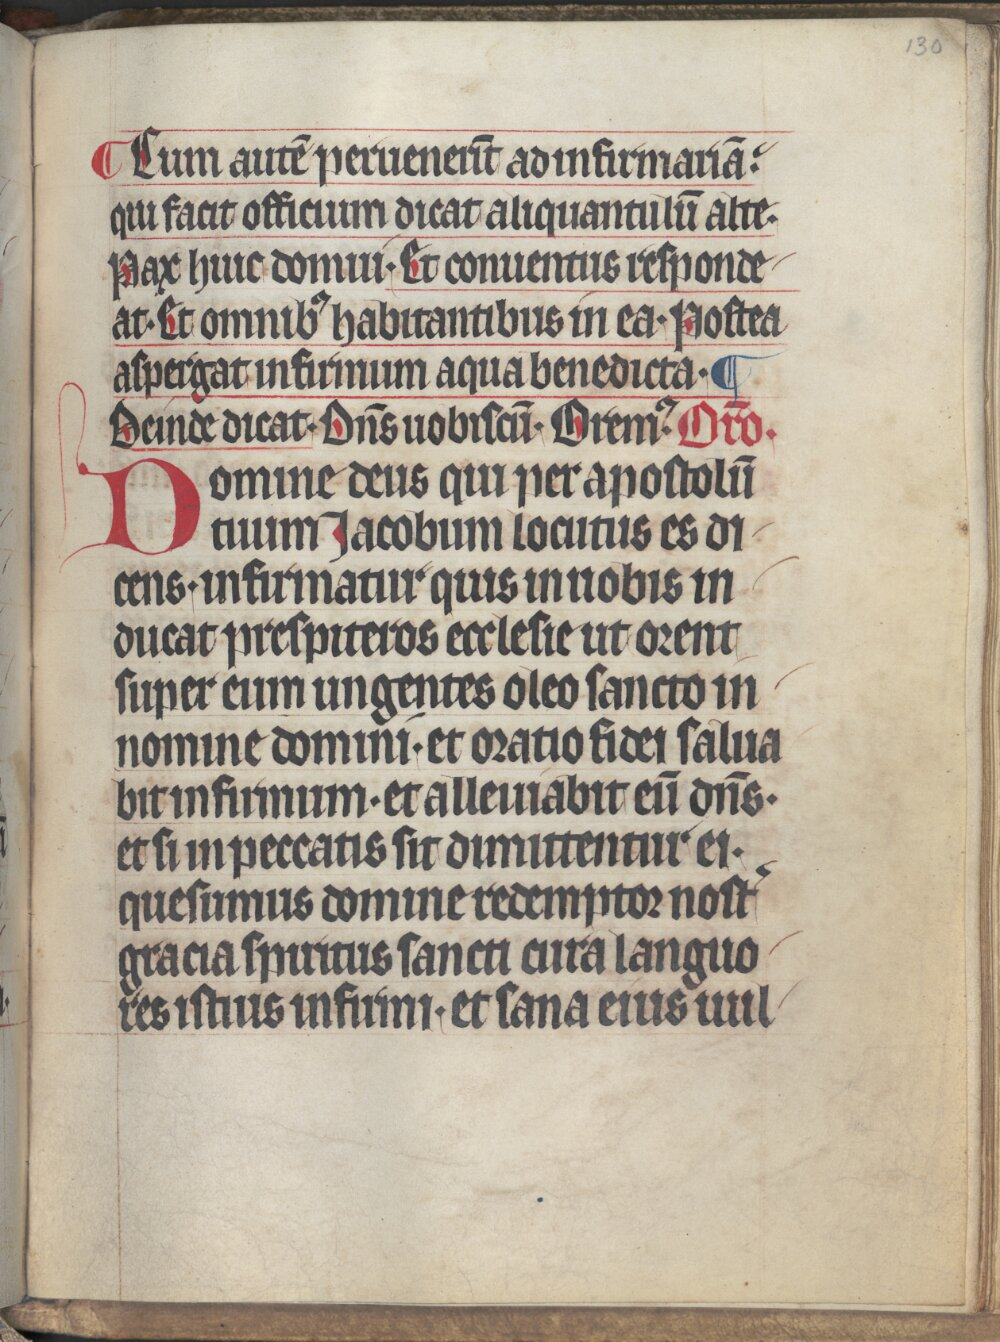 130
¶ Cum autē peruenerīt ad infirmariā.
qui facit officium dicat aliquantulū alte.
Pax huic domui. Et conuentus responde
at. Et omnibꝰ habitantibus in ea. Postea
aspergat infirmum aqua benedicta. ¶
Deinde dicat. Dn̄s uobiscū. Oremꝰ. Or̄o.
Domine deus qui per apostolū
tuum Jacobum locutus es di
cens. infirmatur quis in uobis in
ducat prespiteros ecclesie ut orent
super eum ungentes oleo sancto in
nomine domini. et oratio fidei salua
bit infirmum. et alleuiabit eū dn̄s.
et si in peccatis sit dimittentur ei.
quesumus domine redemptor nost᾿
gracia spiritus sancti cura languo
res istius infirmi. et sana eius uul